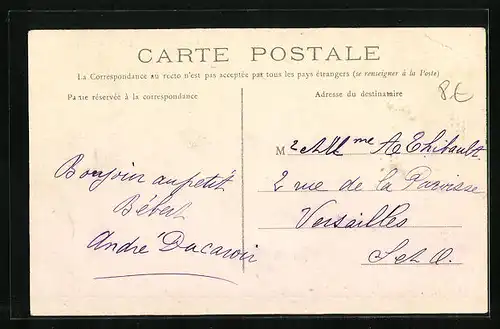 CARTE POSTALE
La Correspondance au recto n'est pas acceptée par tous les pays étrangers (se renseigner à la Poste)
Partie réservée à la correspondance
Adresse du destinataire
8€
M et Mme A Thibault
2 rue de la Paroisse
Versailles
S et O.
Bonjour au petit
Bébert
André